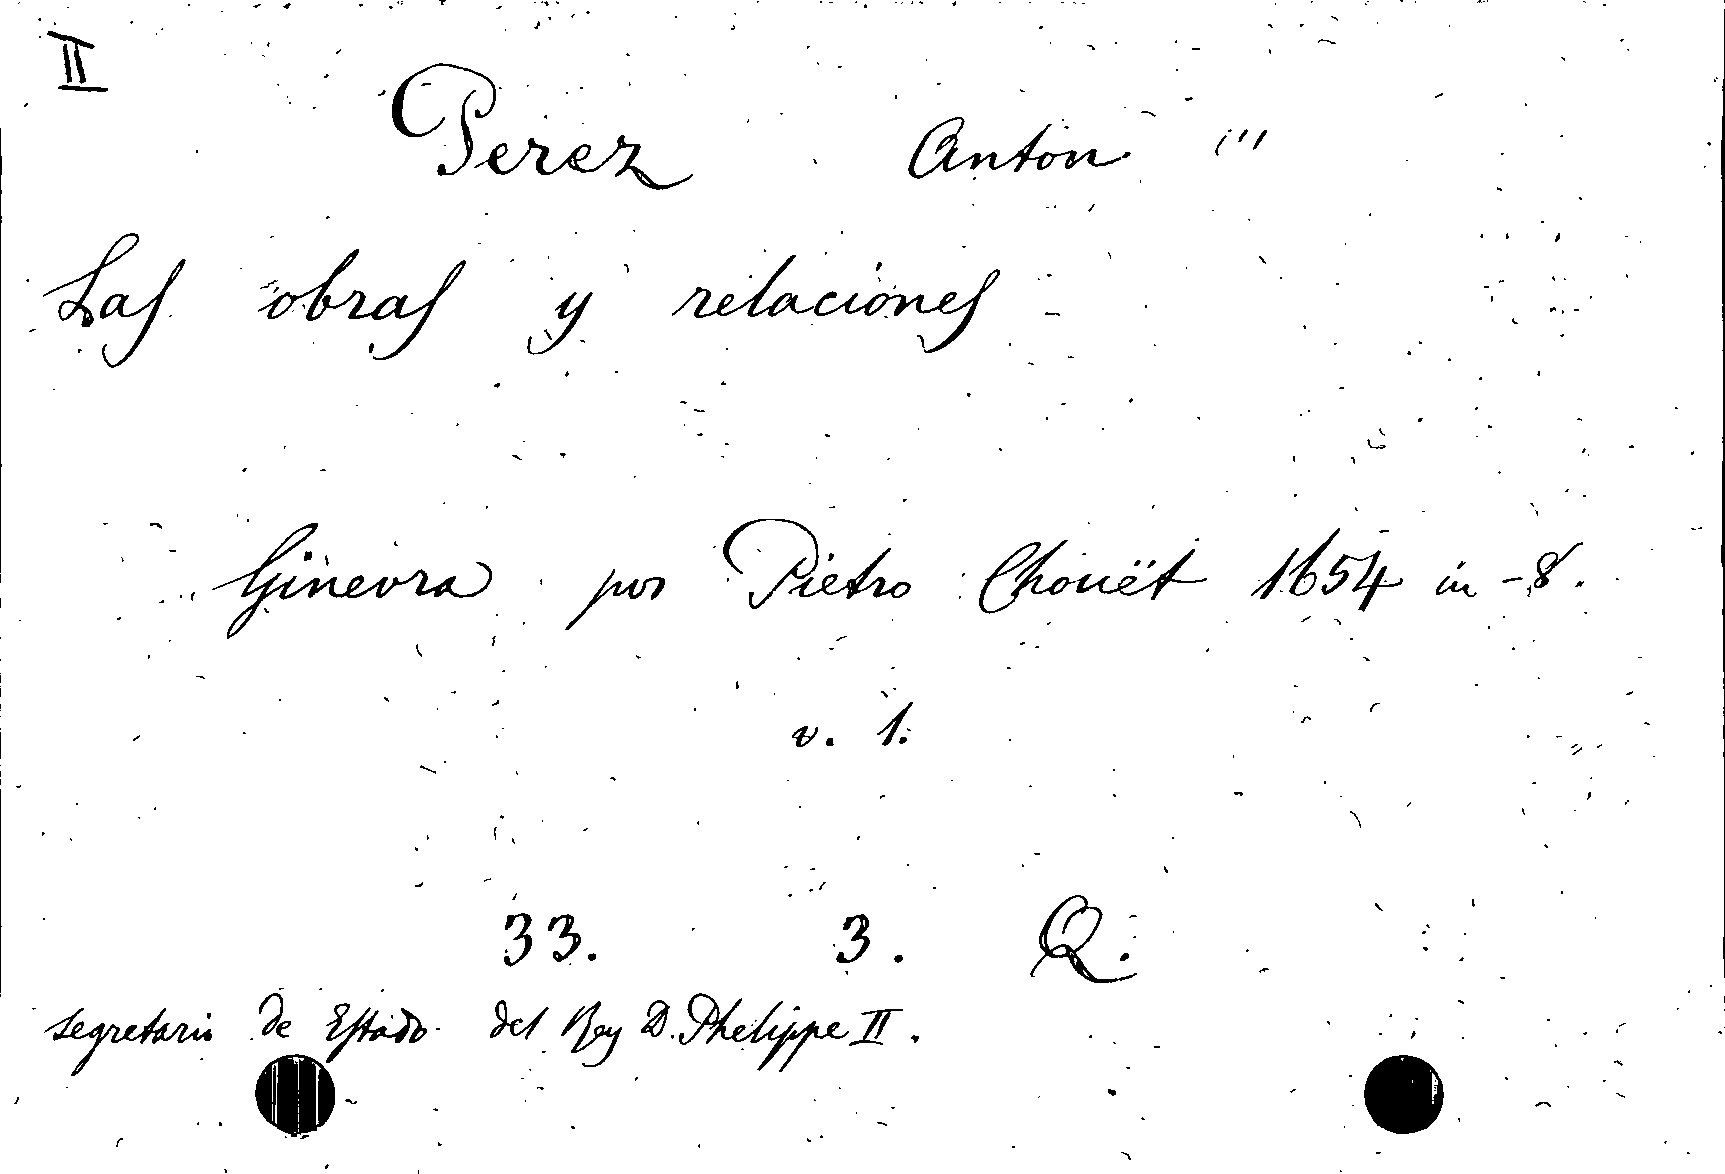 II
Perez Anton '''
Las obras y relaciones
Ginevra por Pietro Chouët 1654 in-8.
v. 1.
33. 3. Q.
segretario de Estado del Rey D. Phelippe II.